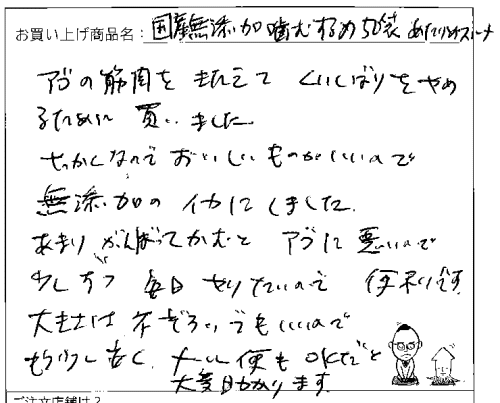 お買い上げ商品名：国産無添加噛むするめ50袋
アゴの筋肉をきたえて くいしばりをやめ
るために 買いました
せっかくなので おいしいものがいいので
無添加の イカにしました.
あまり がんばってかむと アゴに 悪いので
少しずつ 毎日 やりたいので 便利です
大きさは 不ぞろいでもいいので
もう少し安く、メール便も OKだと
大変助かります.
ご注文店舗は？